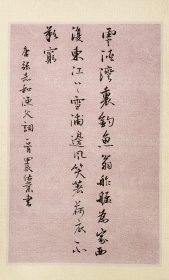 霅溪灣裏釣魚翁舴艋為家西
復東江上雪浦邊風笑著荷衣不
歎窮
唐張志和漁父詞 書